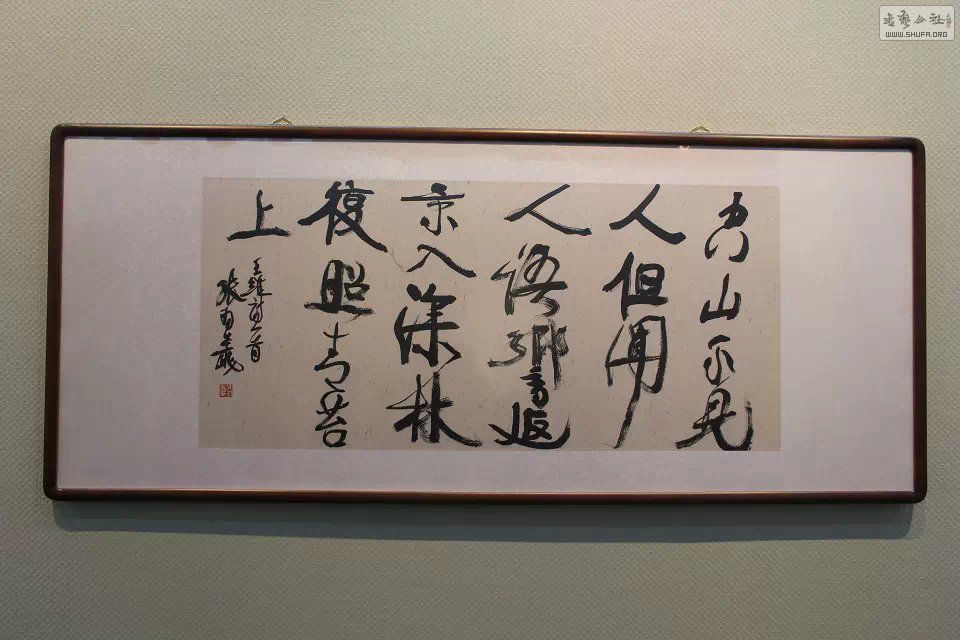 空山不見
人但聞
人語響返
景入深林
復照青苔
上
王維詩一首
張
書艺公社
WWW.SHUFA.ORG